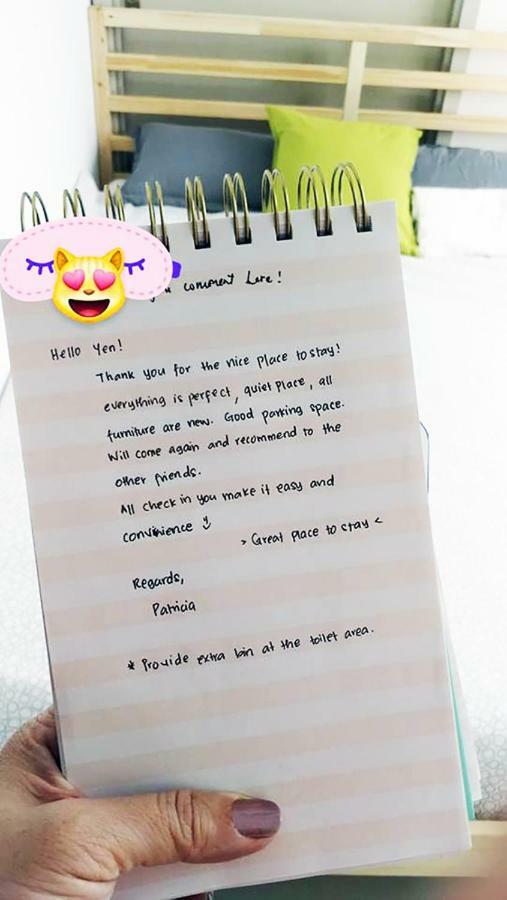 comment Here!
Hello Yen!
Thank you for the nice place to stay!
everything is perfect, quiet place, all
furniture are new. Good parking space.
Will come again and recommend to the
other friends.
All check in you make it easy and
convinience
> Great place to stay <
Regards,
Patricia
* Provide extra bin at the toilet area.